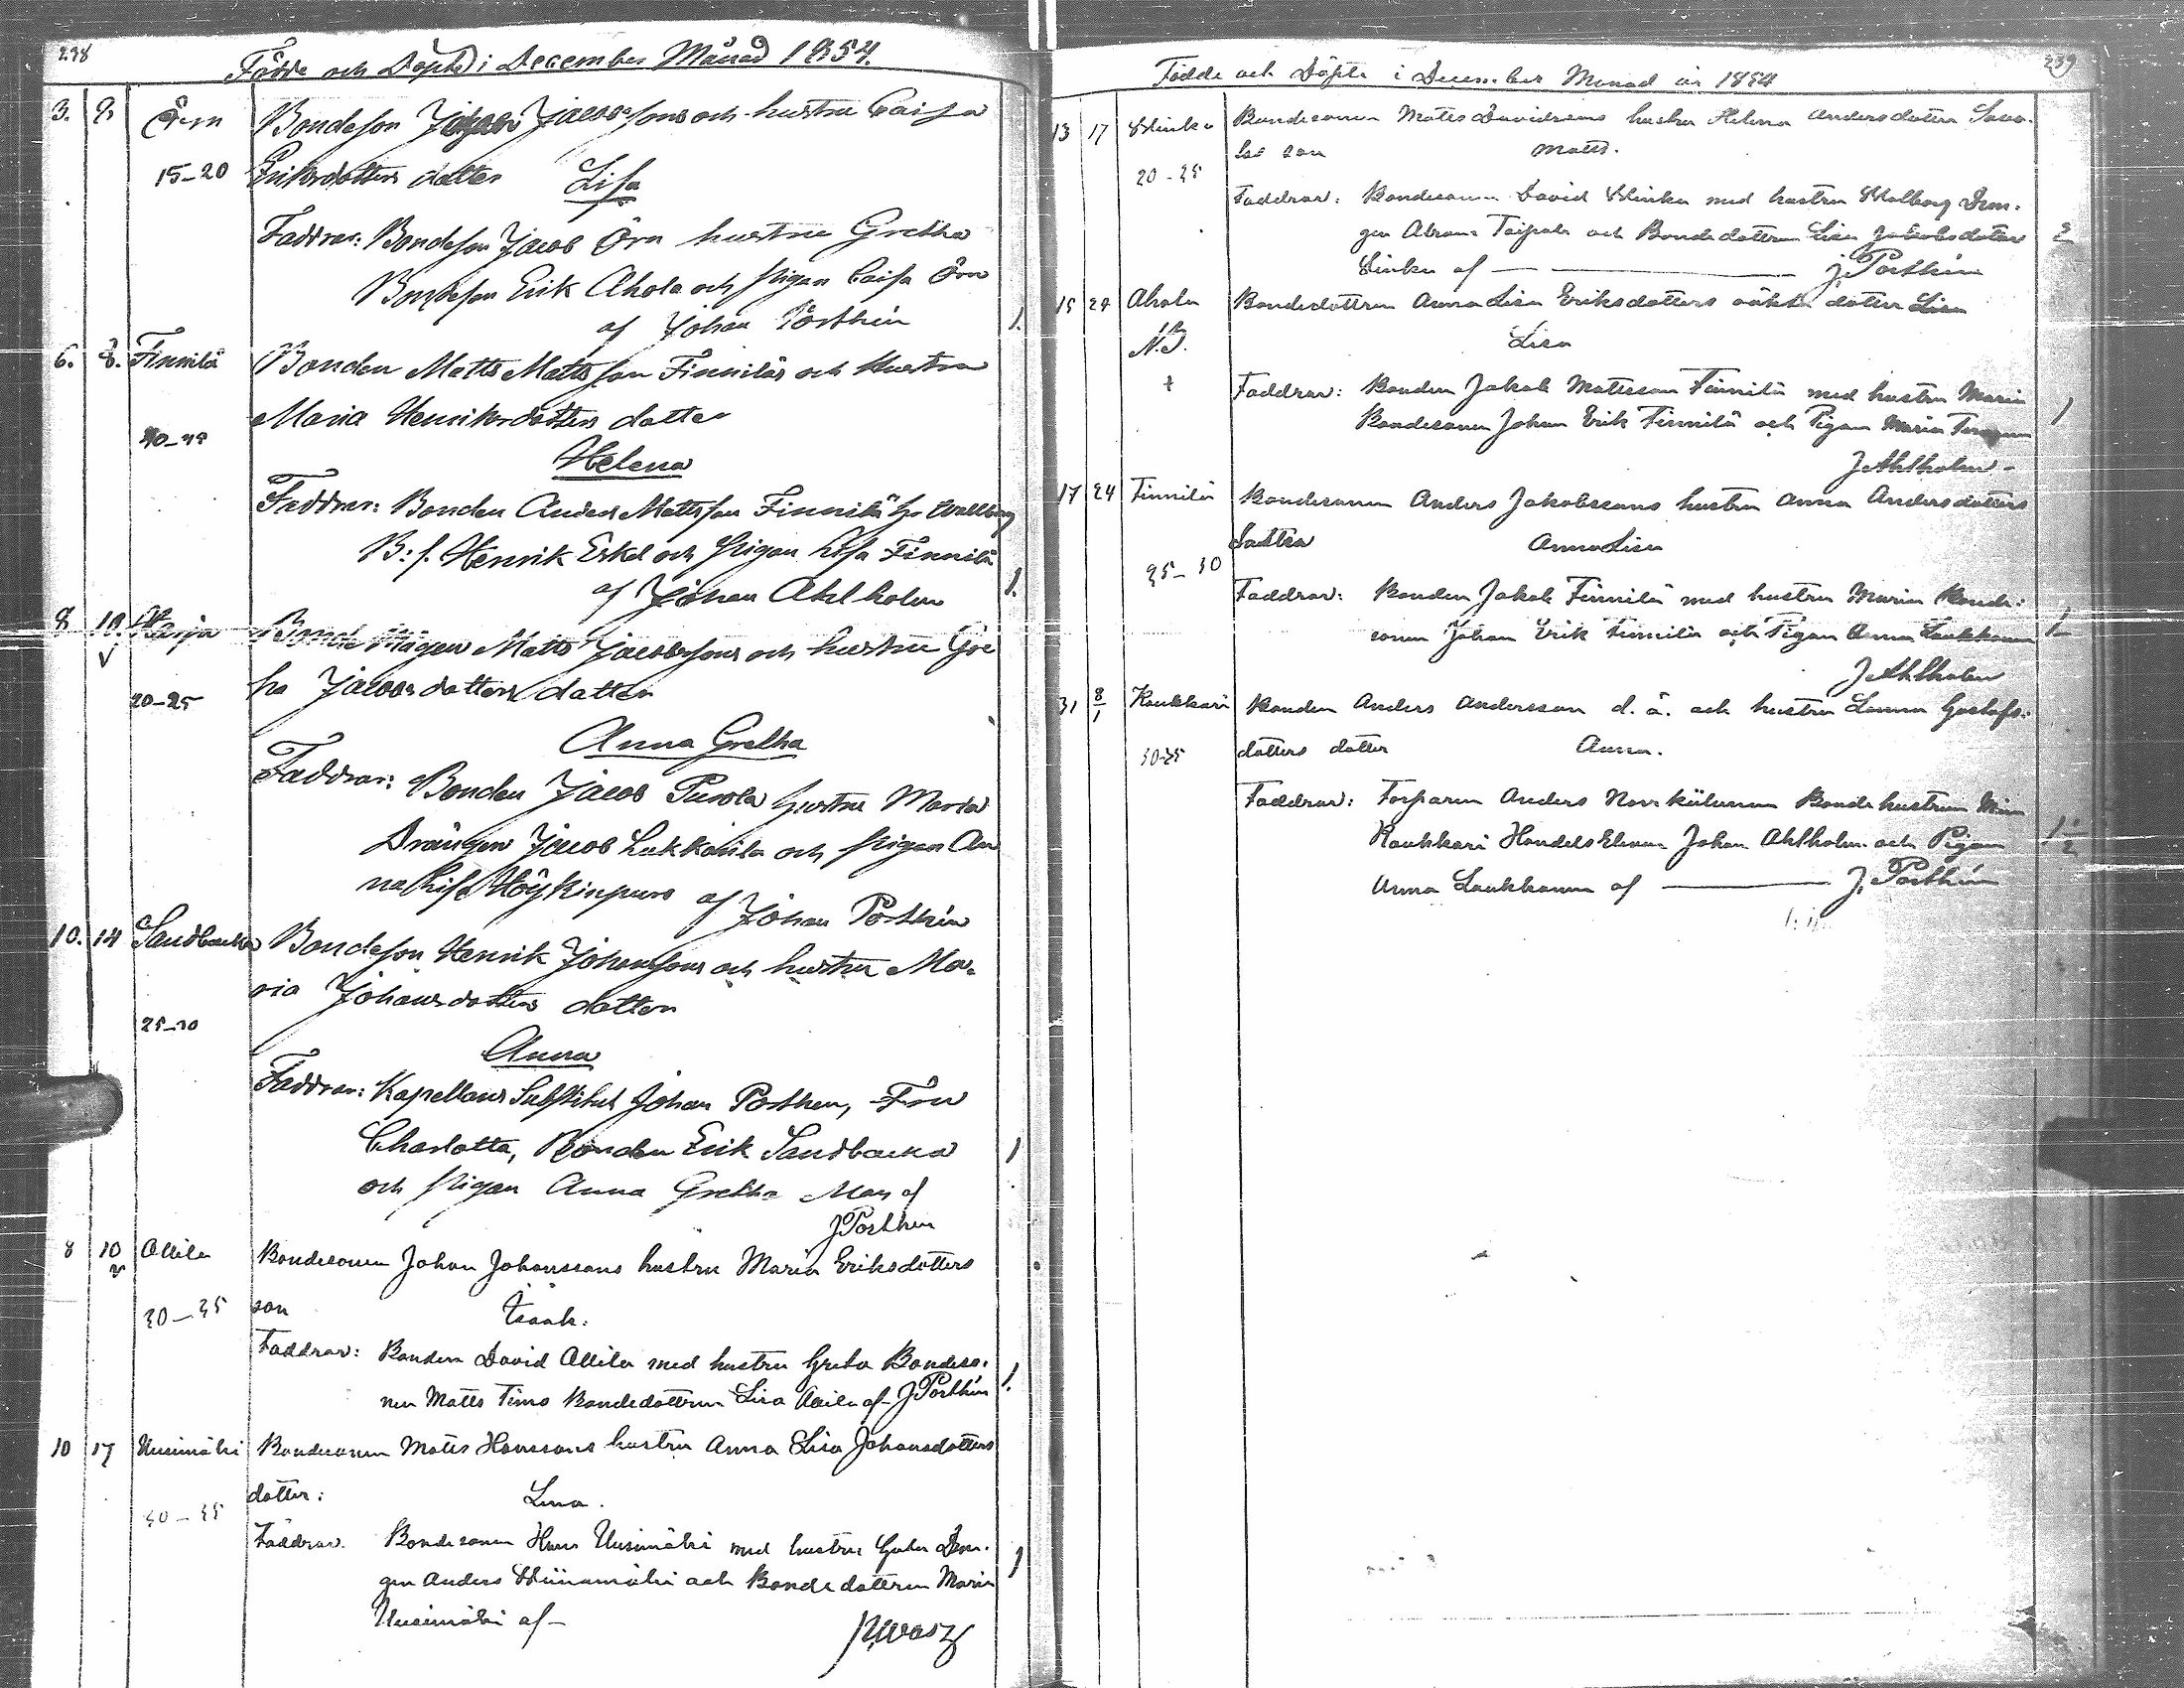 238
Födde och Döpte i December Månad 1854.
3. Örn Bondeson Johan Jacobssons och hustru Caisa
15-20 Eriksdotters dotter Lisa
Faddrar: Bondeson Jacob Örn hustru Gretha
Bondeson Erik Ahola och pigan Caisa Örn
af Johan Posthén 1.
6. 8. Finnilä Bonden Matts Mattsson Finniläs och hustru
Maria Henriksdotters dotter
Helena
Faddrar: Bonden Anders Mattsson Finnilä hu Wallborg
B: s. Henrik Eskel och pigan Lisa Finnilä
af Johan Ahlholm 1.
8 10. Bonde Mågen Matts Jacobssons och hustru Gre
ha Jacobsdotters dotter
20-25
Anna Gretha
Faddrar: Bonden Jacob Purola hustru Maria
Drängen Jacob Lukkarila och pigan An
na Lisa Höykinpuro af Johan Posthén
10. 14 Sandbacka Bondeson Henrik Johanssons och hustru Ma-
ria Johansdotters dotter
25-30
Anna
Faddrar: Kapellans Substitut Johan Posthen, Fru
Charlotta, Bonden Erik Sandbacka 1
och pigan Anna Gretha Mars af
J Posthen
8 10 Allila Bondesonen Johan Johanssons hustru Maria Eriksdotters
30-35 son Isaak.
Faddrar: Bonden David Allila med hustru Greta Bondeso-
nen Matts Timo Bondedottren Lisa Allila af J Posthén 1.
10 17 Uusimäki Bondesonen Matts Hanssons hustru Anna Lisa Johansdotters
dotter: Lena.
Faddrar. Bondesonen Hans Uusimäki med hustru Greta Drän-
gen Anders Hiinamäki och Bondedottren Maria 1
Uusimäki af —
239
Födde och Döpte i December Månad år 1854
13 17 Bondesonen Matts Davidssons hustru Helena Andersdotter
son Matts.
20-25
Faddrar: Bondesonen David med hustru Walborg Drän-
gen Abram Taipale och Bondedottren Lisa Jakobsdotter
af — J. Posthén
15 24 Ahola Bondedottren Anna Lisa Eriksdotters oäkta dotter Lisa
N.B. Lisa
Faddrar: Bonden Jakob Mattsson Finnilä med hustru Maria
Bondesonen Johan Erik Finnilä och Pigan Maria 1
J Ahlholm
17 24 Finnilä Bondesonen Anders Jakobssons hustru Anna Andersdotters
dotter Anna Lisa
25-30
Faddrar: Bonden Jakob Finnilä med hustru Maria Bonde-
sonen Johan Erik Finnilä och Pigan Anna Laukkonen
J Ahlholm
31 8/1 Kaukkari Bonden Anders Andersson d. ä. och hustru Leena Gustafs-
30-35 dotters dotter Anna.
Faddrar: Torparen Anders Norrkülunen Bondehustrun
Kaukkari Handels Eleven Johan Ahlholm och Pigan
Anna Laukkonen af — J. Posthén